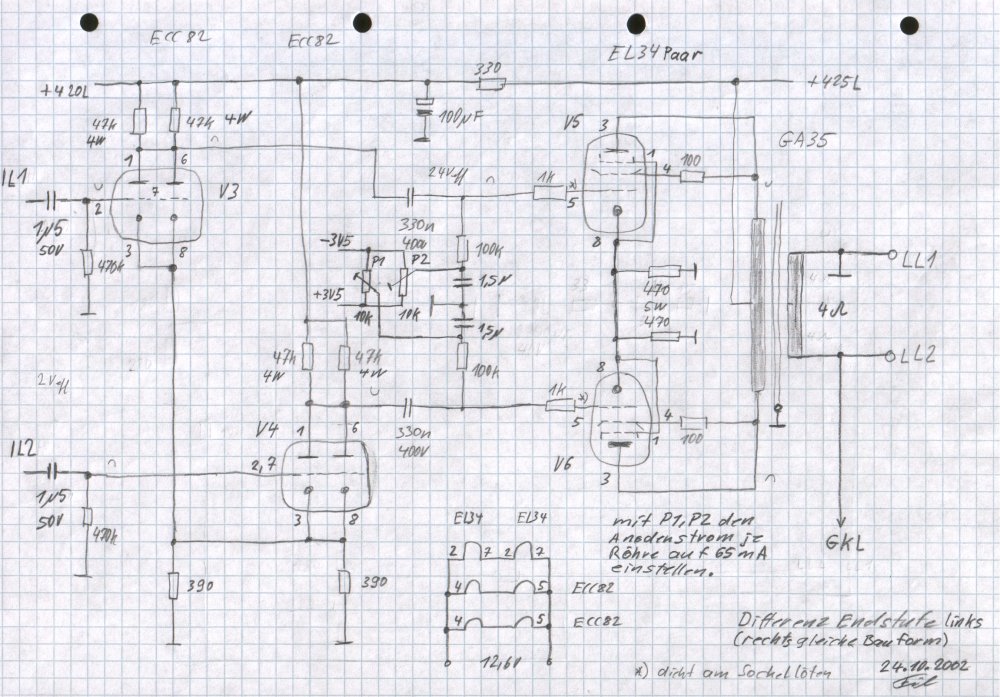 ECC82
ECC82
EL34 Paar
+420L
330
+425L
47k
4W
47k 4W
100µF
V5
3
GA35
1
6
7
V3
24V~
1K
*)
5
1
4
100
IL1
2
1µ5
50V
3
8
470k
330n
400V
-3V5
P1
P2
100k
8
1,5µ
470
5W
470
LL1
4Ω
+3V5
10K
10K
1,5µ
47k
4W
47k
4W
100k
8
LL2
2V~
1K
*)
5
4
100
1
V4
1
6
330n
400V
V6
3
IL2
2,7
1µ5
50V
3
8
470k
EL34
EL34
mit P1, P2 den
Anodenstrom je
Röhre auf 65mA
einstellen.
GKL
2
7
2
7
390
390
4
5
ECC82
4
5
ECC82
12,6V
Differenz Endstufe links
(rechts gleiche Bauform)
*) dicht am Sockel löten
24.10.2002